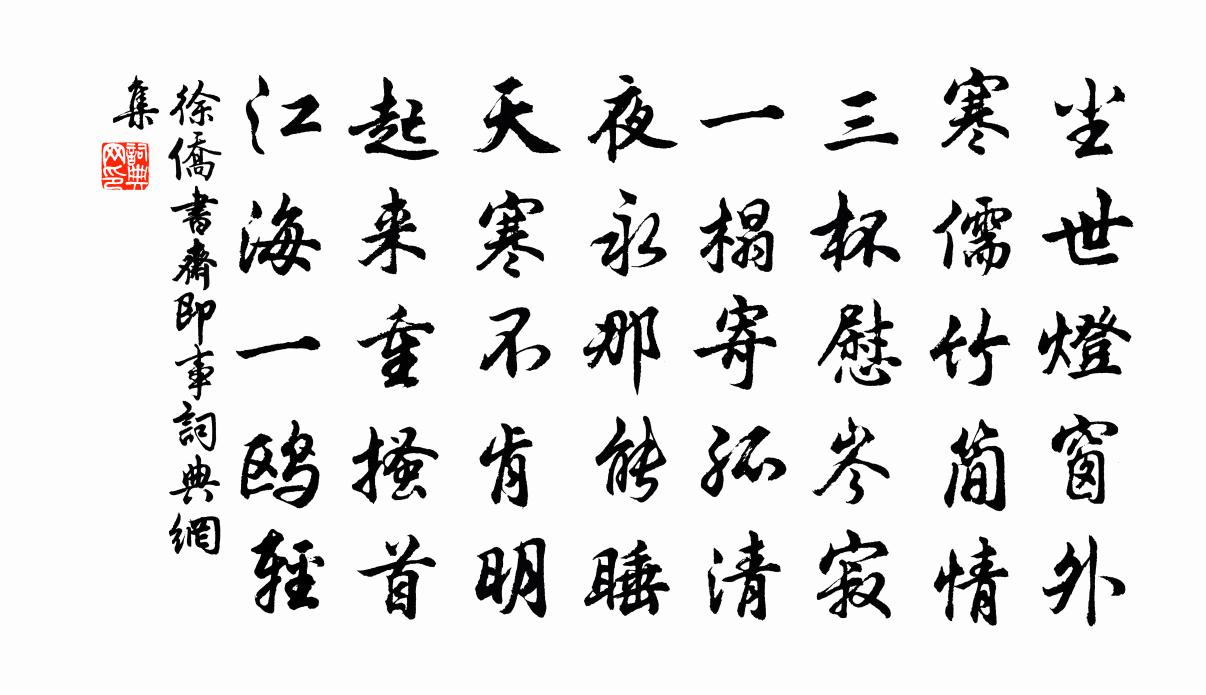 尘世燈窗外
寒儒竹简情
三杯慰岑寂
一榻寄孤清
夜永那能睡
天寒不肯明
起来重搔首
江海一鸥輕
徐僑書齋即事詞典網
集
詞典网印